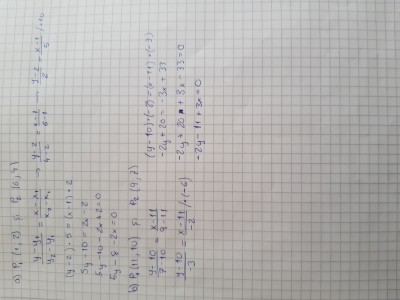 a) P₁ (1, 2) și P₂ (6, 4)
y-y₁/y₂-y₁ = x-x₁/x₂-x₁ → y-2/4-2 = x-1/6-1 → y-2/2 = x-1/5 /·10
(y-2)·5 = (x-1)·2
5y-10 = 2x-2
5y-10-2x+2=0
5y-8-2x=0
b) P₁ (11, 10) și P₂ (9, 7)
y-10/7-10 = x-11/9-11
y-10/-3 = x-11/-2 /·(-6)
(y-10)·(-2) = (x-11)·(-3)
-2y+20 = -3x+33
-2y+20+3x-33=0
-2y-11+3x=0